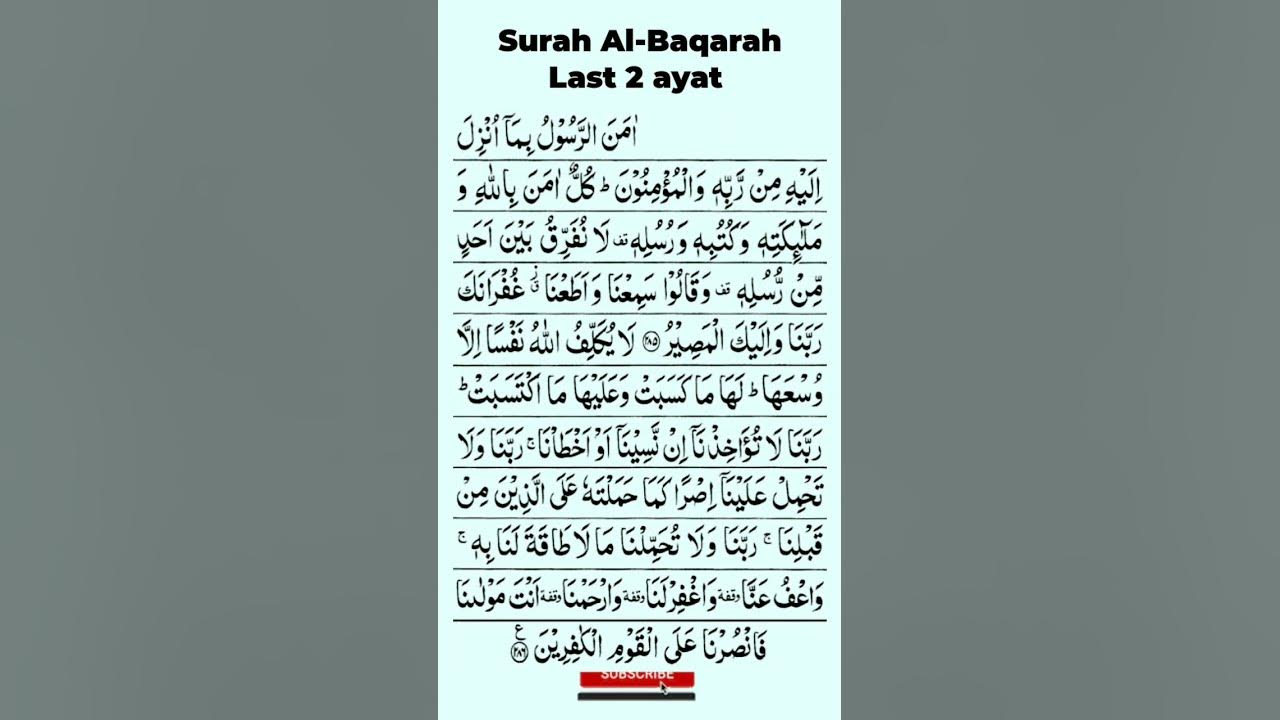 Surah Al-Baqarah
Last 2 ayat
اٰمَنَ الرَّسُوْلُ بِمَاۤ اُنْزِلَ
اِلَيْهِ مِنْ رَّبِّهٖ وَالْمُؤْمِنُوْنَ ؕ كُلٌّ اٰمَنَ بِاللّٰهِ وَ
مَلٰٓئِكَتِهٖ وَكُتُبِهٖ وَرُسُلِهٖ قف لَا نُفَرِّقُ بَيْنَ اَحَدٍ
مِّنْ رُّسُلِهٖ قف وَقَالُوْا سَمِعْنَا وَاَطَعْنَا ق ز غُفْرَانَكَ
رَبَّنَا وَاِلَيْكَ الْمَصِيْرُ ۝۲۸۵ لَا يُكَلِّفُ اللّٰهُ نَفْسًا اِلَّا
وُسْعَهَا ؕ لَهَا مَا كَسَبَتْ وَعَلَيْهَا مَا اكْتَسَبَتْ ؕ
رَبَّنَا لَا تُؤَاخِذْنَاۤ اِنْ نَّسِيْنَاۤ اَوْ اَخْطَاْنَا ۚ رَبَّنَا وَلَا
تَحْمِلْ عَلَيْنَاۤ اِصْرًا كَمَا حَمَلْتَهٗ عَلَى الَّذِيْنَ مِنْ
قَبْلِنَا ۚ رَبَّنَا وَلَا تُحَمِّلْنَا مَا لَا طَاقَةَ لَنَا بِهٖ ۚ
وَاعْفُ عَنَّا وقفة وَاغْفِرْ لَنَا وقفة وَارْحَمْنَا وقفة اَنْتَ مَوْلٰىنَا
فَانْصُرْنَا عَلَى الْقَوْمِ الْكٰفِرِيْنَ ۝۲۸۶ ع
SUBSCRIBE